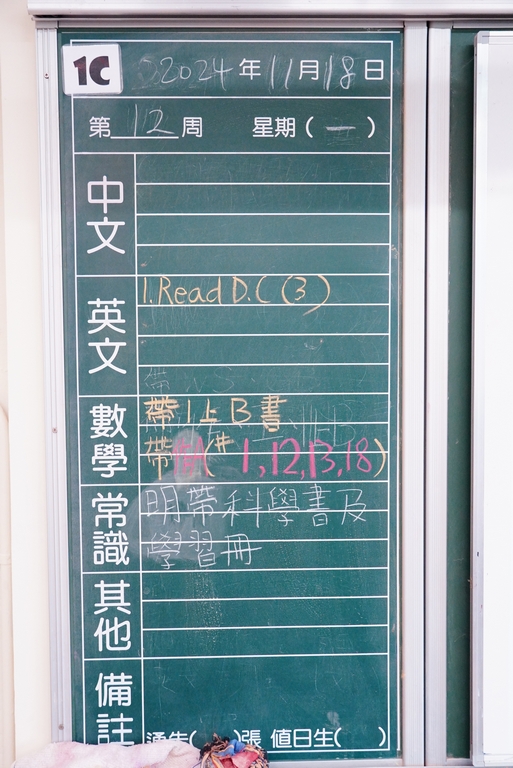 1C
2024年11月18日
第12周 星期(一)
中文
英文
1.Read D.C (3)
數學
帶1上B書
帶 (# 1,12,13,18)
常識
明帶科學書及
學習冊
其他
備註
通告( )張 值日生( )